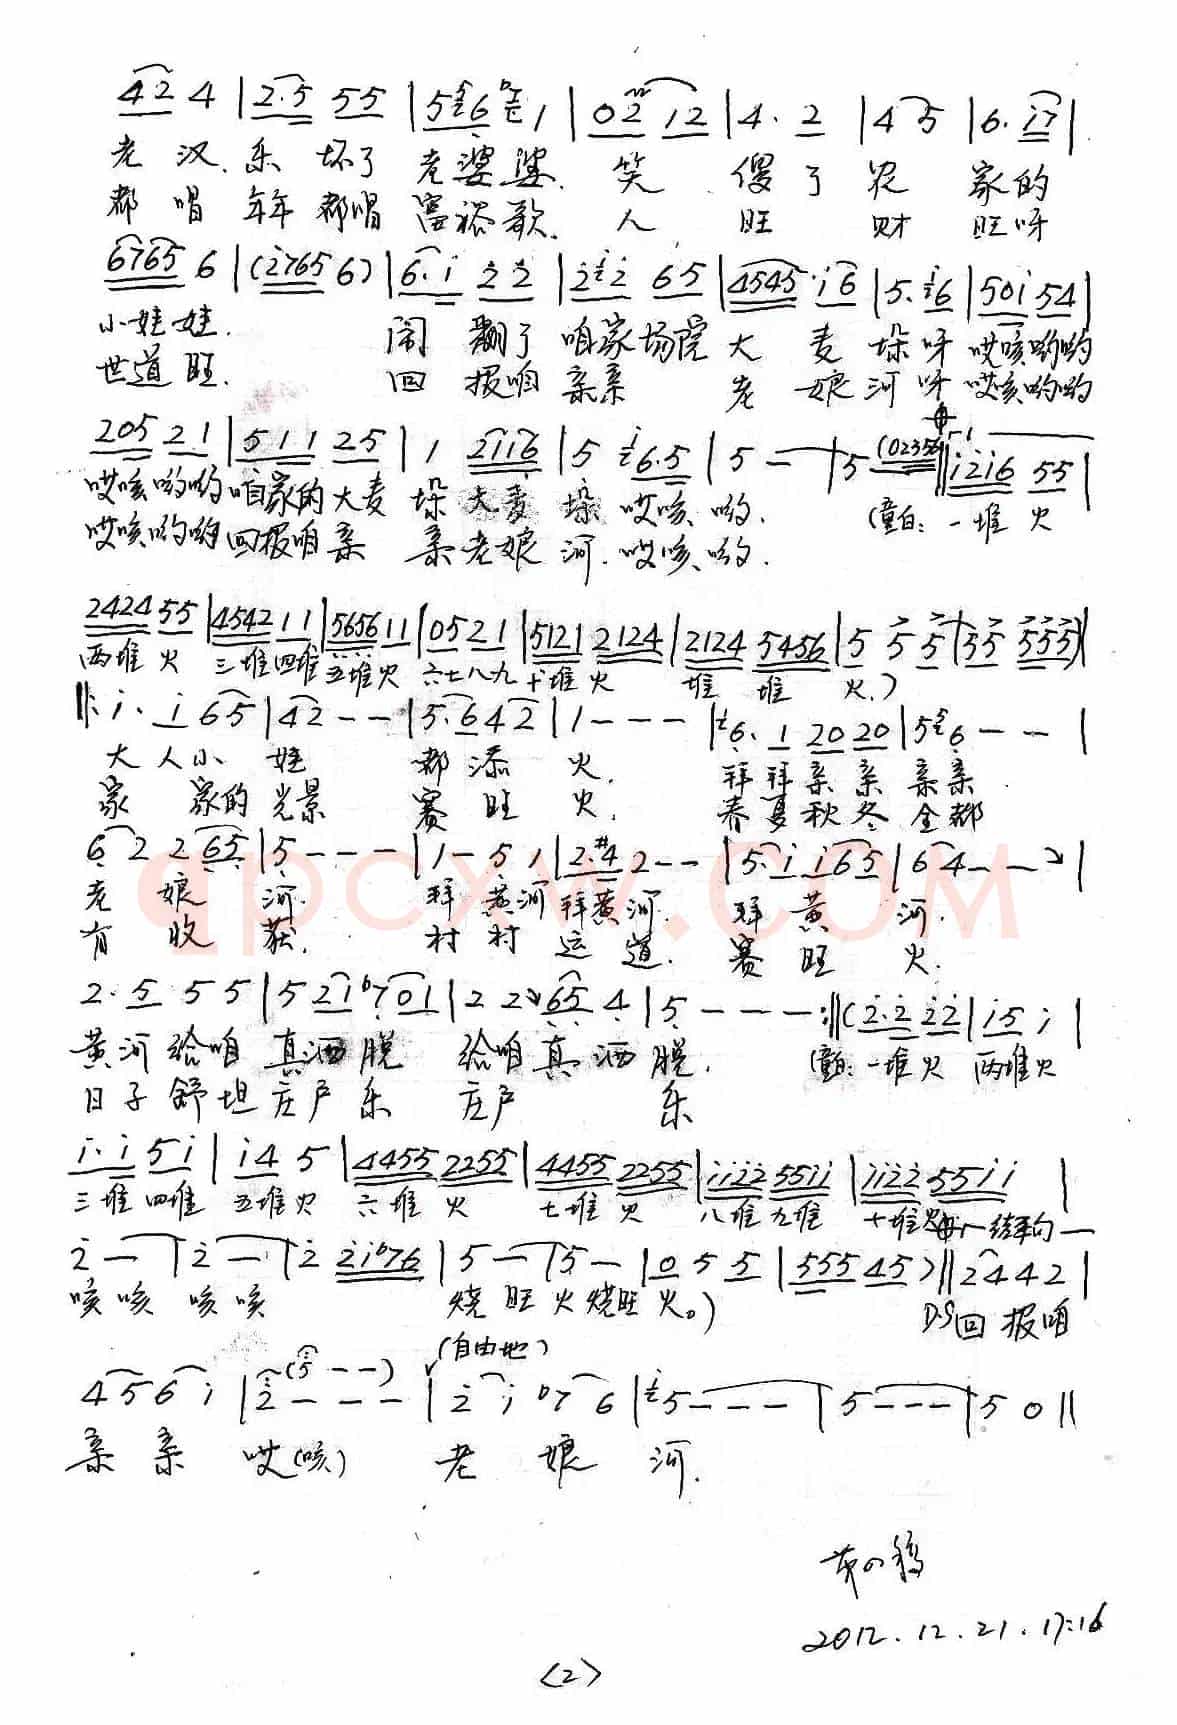 4 2 4 | 2·5 5 5 | 5 6 1 | 0 2 1 2 | 4· 2 | 4 5 | 6· i 7 |
老汉.乐坏了老婆婆.笑傻了农家的
都唱年年都唱富裕歌.人旺财旺呀
6765 6 | (2765 6) | 6·i 2 2 | 2 2 6 5 | 4545 i 6 | 5· 6 | 50i 54 |
小娃娃.闹翻了咱家场院大麦垛呀哎咳哟哟
世道旺.回报咱亲亲老娘河呀哎咳哟哟
205 21 | 511 25 | 1 2116 | 5 6·5 | 5 — | 5 (0235 | i2i6 55 |
哎咳哟哟咱家的大麦垛大麦垛哎咳哟.(童白:一堆火
哎咳哟哟回报咱亲亲老娘河.哎咳哟.
2424 55 | 4542 11 | 5656 11 | 05 21 | 5121 2124 | 2124 5456 | 5 5 5 | 55 555) |
两堆火三堆四堆五堆火六七八九十堆火堆堆火.)
‖: i· i 6 5 | 4 2 - - | 5· 6 4 2 | 1 - - - | 6· 1 20 20 | 5 6 - - |
大人小娃都添火.拜拜亲亲亲亲
家家的光景赛旺火.春夏秋冬全都
6 2 2 65 | 5 - - - | 1 - 5 1 | 2 #4 2 - - | 5· i i 6 5 | 6 4 - - |
老娘河.拜黄河拜黄河.拜黄河.
有收获.村村运道.赛旺火.
2· 5 5 5 | 5 21 b7 01 | 2 2 65 4 | 5 - - - :‖ (2·2 22 | i5 i |
黄河给咱真洒脱给咱真洒脱.(童白:一堆火两堆火
日子舒坦庄户乐庄户乐
i·i 5i | i4 5 | 4455 2255 | 4455 2255 | ii22 55ii | ii22 55i i |
三堆四堆五堆火六堆火七堆火八堆九堆十堆火结束句
2 — | 2 — | 2 2ib76 | 5 — | 5 — | 0 5 5 | 555 45) ‖ 2 4 4 2 |
咳咳咳咳烧旺火烧旺火。)D.S回报咱
(5 - -) (自由地)
4 5 6 i | 2 - - - | 2 i b7 6 | 5 - - - | 5 - - - | 5 0 ‖
亲亲哎(咳)老娘河.
2012.12.21.17:16
<2>